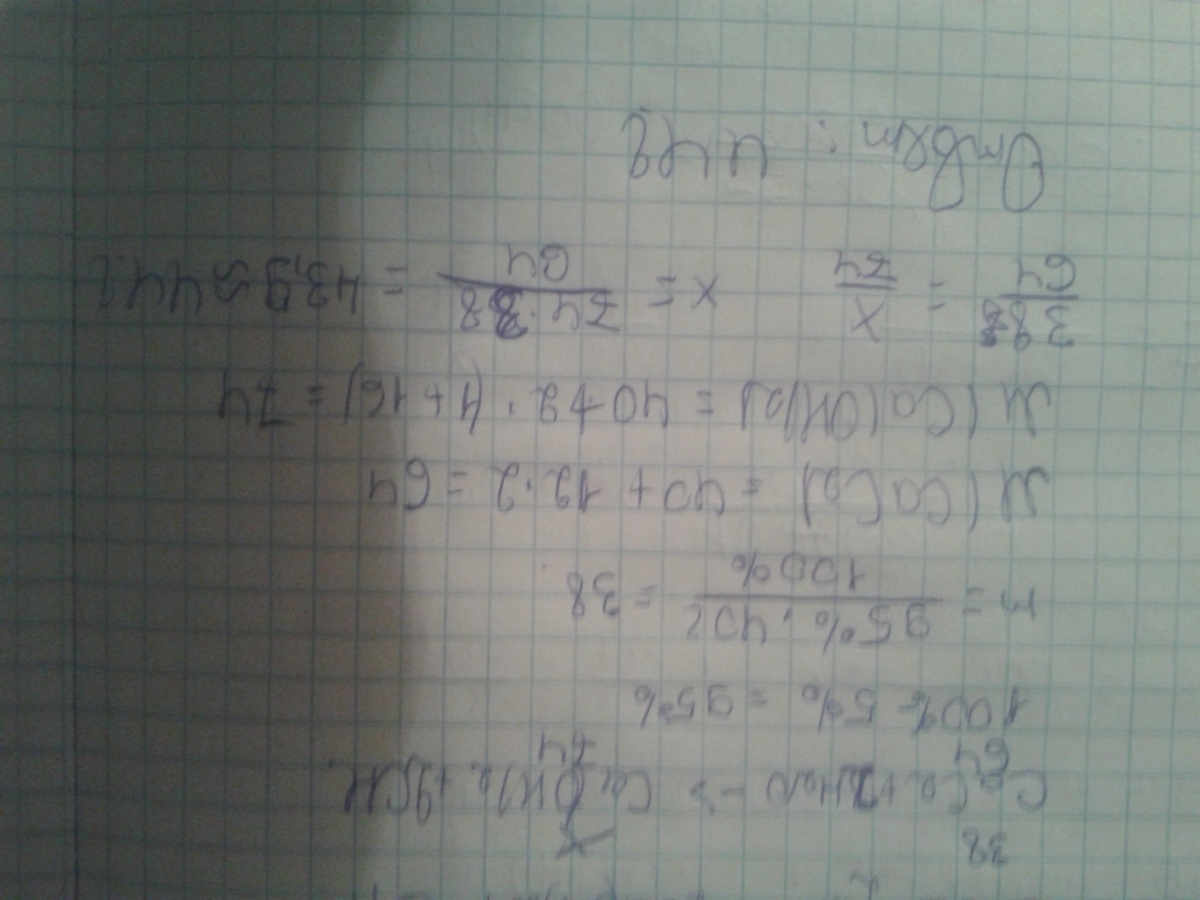 38 x
CaC₂ + 2H₂O -> Ca(OH)₂ + 
64 74
100% - 5% = 95%
m = 95% · 40г / 100% = 38
M (CaC₂) = 40 + 12 · 2 = 64
M (Ca(OH)₂) = 40 + 2 · (1 + 16) = 74
38 / 64 = x / 74 x = 74 · 38 / 64 = 43,9 ≈ 44 г
Ответ: 44г